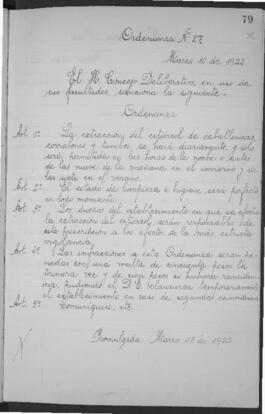 79
Ordenanza Nº 27
Marzo 10 de 1922
El H. Concejo Deliberativo en uso de
sus facultades, sanciona la siguiente.-
Ordenanza
Art. 1º La extracción del estiércol de caballerizas,
corralones y tambos, se hará diariamente y sólo
será permitida en las horas de la noche o antes
de las nueve de la mañana en el invierno y de
las siete en el verano.
Art. 2º El estado de limpieza e higiene, será perfecto
en todo momento.
Art. 3º Los dueños del establecimiento en que se efectúa
la extracción del estiércol, serán responsables de
esta prescripción a los efectos de la más estricta
vigilancia.
Art. 4º Las infracciones a esta Ordenanza serán pe-
nadas con una multa de cincuenta pesos la
primera vez y de cien pesos si hubiera reinciden-
cia, pudiendo el D. E. clausurar temporariamente
el establecimiento en caso de segunda reincidencia
Art. 5º Comuníquese, etc.
Promulgada Marzo 18 de 1922